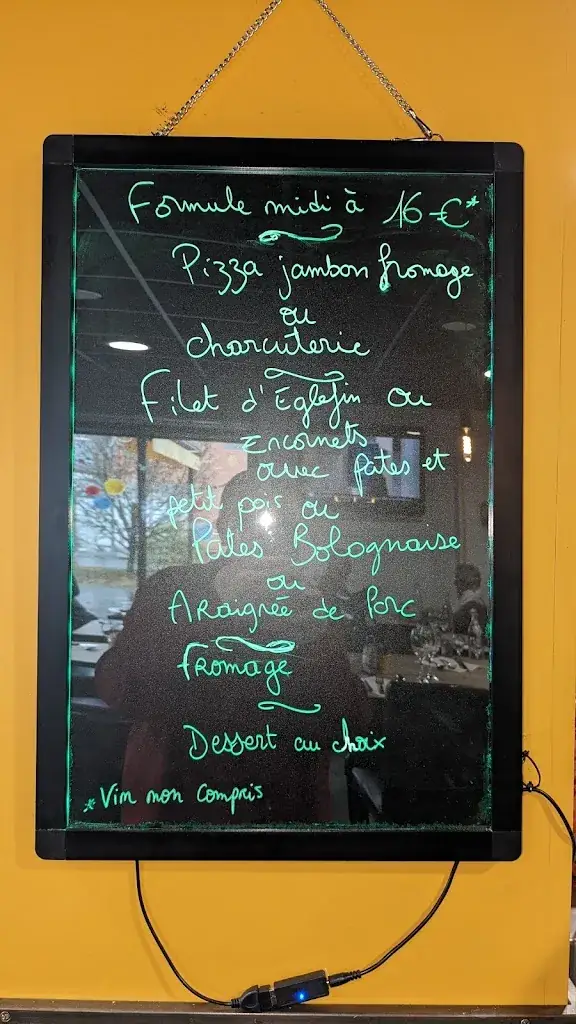 Formule midi à 16 €*
Pizza jambon fromage
ou
charcuterie
Filet d'Eglefin ou
Encornets
avec pates et
petit pois ou
Pates Bolognaise
ou
ARaignée de Porc
fRomage
Dessert au choix
* Vin non compris